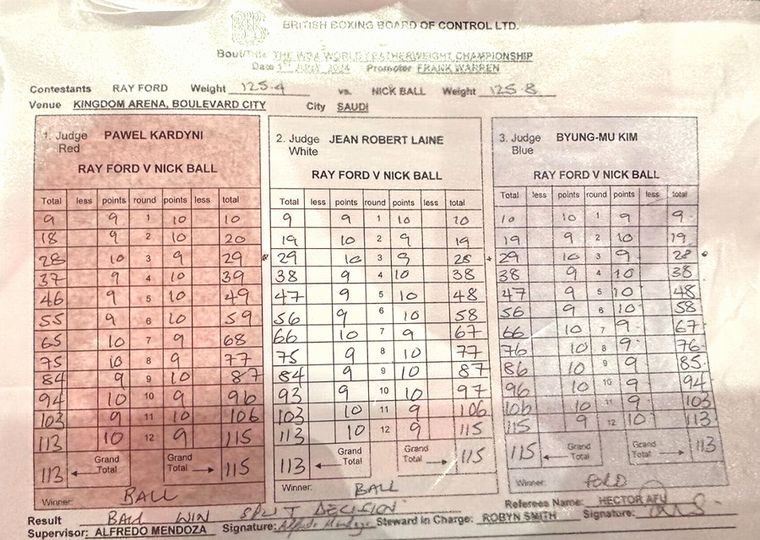 BRITISH BOXING BOARD OF CONTROL LTD.
Bout/Title THE WBA WORLD FEATHERWEIGHT CHAMPIONSHIP
Date 1ST JUNE 2024 Promoter FRANK WARREN
Contestants RAY FORD Weight 125.4 vs. NICK BALL Weight 125.8
Venue KINGDOM ARENA, BOULEVARD CITY City SAUDI
1. Judge PAWEL KARDYNI 2. Judge JEAN ROBERT LAINE 3. Judge BYUNG-MU KIM
Red White Blue
RAY FORD V NICK BALL RAY FORD V NICK BALL RAY FORD V NICK BALL
Total less points round points less total Total less points round points less total Total less points round points less total
9 9 1 10 10 9 9 1 10 10 10 10 1 9 9
18 9 2 10 20 19 10 2 9 19 19 9 2 10 19
28 10 3 9 29 29 10 3 9 28 29 10 3 9 28
37 9 4 10 39 38 9 4 10 38 38 9 4 10 38
46 9 5 10 49 47 9 5 10 48 47 9 5 10 48
55 9 6 10 59 56 9 6 10 58 56 9 6 10 58
65 10 7 9 68 66 10 7 9 67 66 10 7 9 67
75 10 8 9 77 75 9 8 10 77 76 10 8 9 76
84 9 9 10 87 84 9 9 10 87 86 10 9 9 85
94 10 10 9 96 93 9 10 10 97 96 10 10 9 94
103 9 11 10 106 103 10 11 9 106 106 10 11 9 103
113 10 12 9 115 113 10 12 9 115 115 9 12 10 113
113 Grand Total Grand Total 115 113 Grand Total Grand Total 115 115 Grand Total Grand Total 113
Winner: BALL Winner: BALL Winner: FORD
Result BALL WIN SPLIT DECISION Referees Name: HECTOR AFU
Supervisor: ALFREDO MENDOZA Signature: Alfredo Mendoza Steward in Charge: ROBYN SMITH Signature: